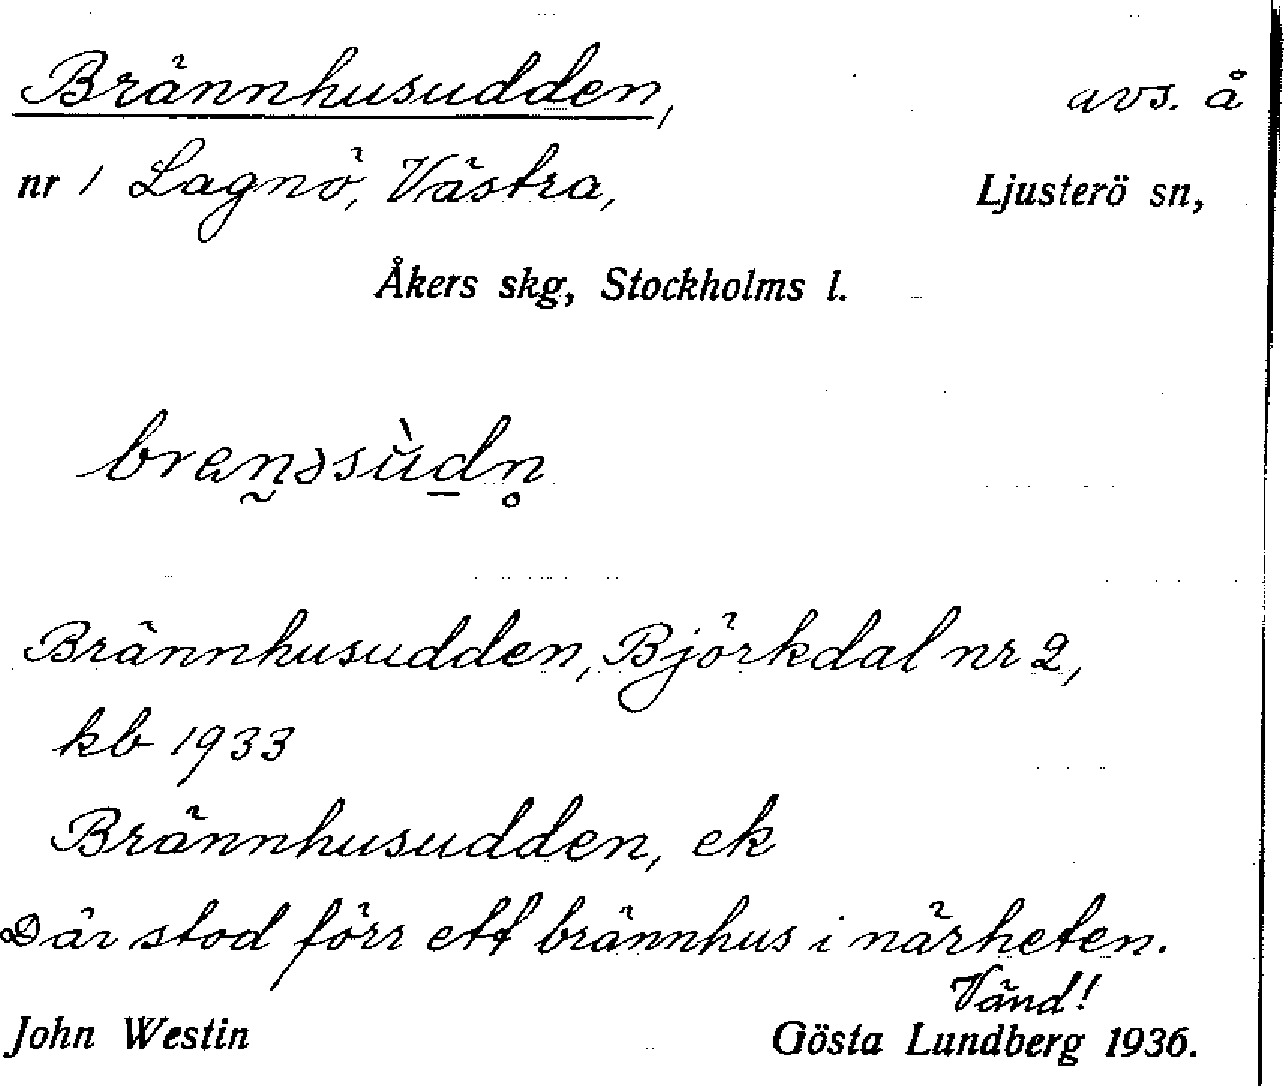 Brännhusudden, avs. å
nr 1 Lagnö, Västra, Ljusterö sn,
Åkers skg, Stockholms l.
Brännhusudden, Björkdal nr 2,
kb 1933
Brännhusudden, ek
Där stod förr ett brännhus i närheten.
Vänd!
John Westin Gösta Lundberg 1936.